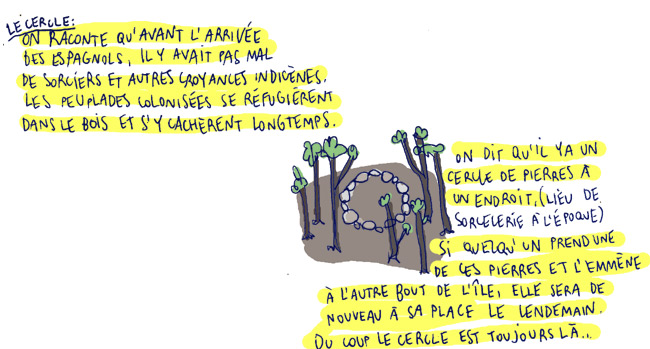 LE CERCLE:
ON RACONTE QU'AVANT L'ARRIVÉE
DES ESPAGNOLS, IL Y AVAIT PAS MAL
DE SORCIERS ET AUTRES CROYANCES INDIGÈNES.
LES PEUPLADES COLONISÉES SE RÉFUGIÈRENT
DANS LE BOIS ET S'Y CACHÈRENT LONGTEMPS.
ON DIT QU'IL Y A UN
CERCLE DE PIERRES À
UN ENDROIT, (LIEU DE
SORCELERIE À L'ÉPOQUE)
SI QUELQU'UN PREND UNE
DE CES PIERRES ET L'EMMÈNE
À L'AUTRE BOUT DE L'ÎLE, ELLE SERA DE
NOUVEAU À SA PLACE LE LENDEMAIN.
DU COUP LE CERCLE EST TOUJOURS LÀ...